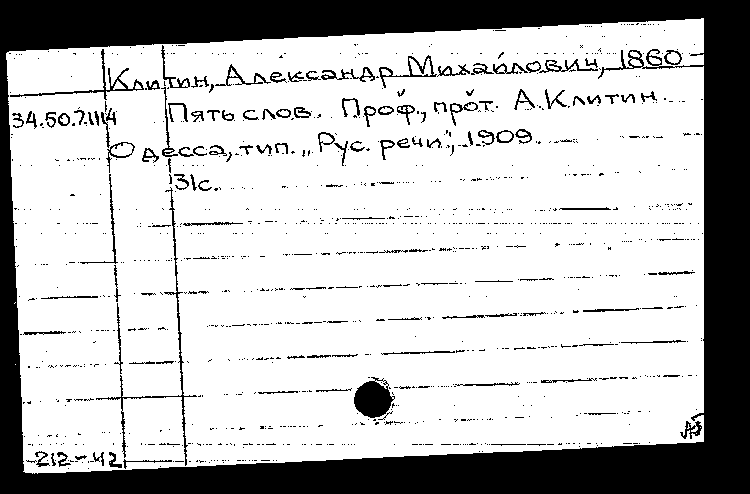 Клитин, Александр Михайлович, 1860 –
34.50.7.1114 Пять слов. Проф., прот. А. Клитин.
Одесса, тип. „Рус. речи“, 1909.
31с.
212-42